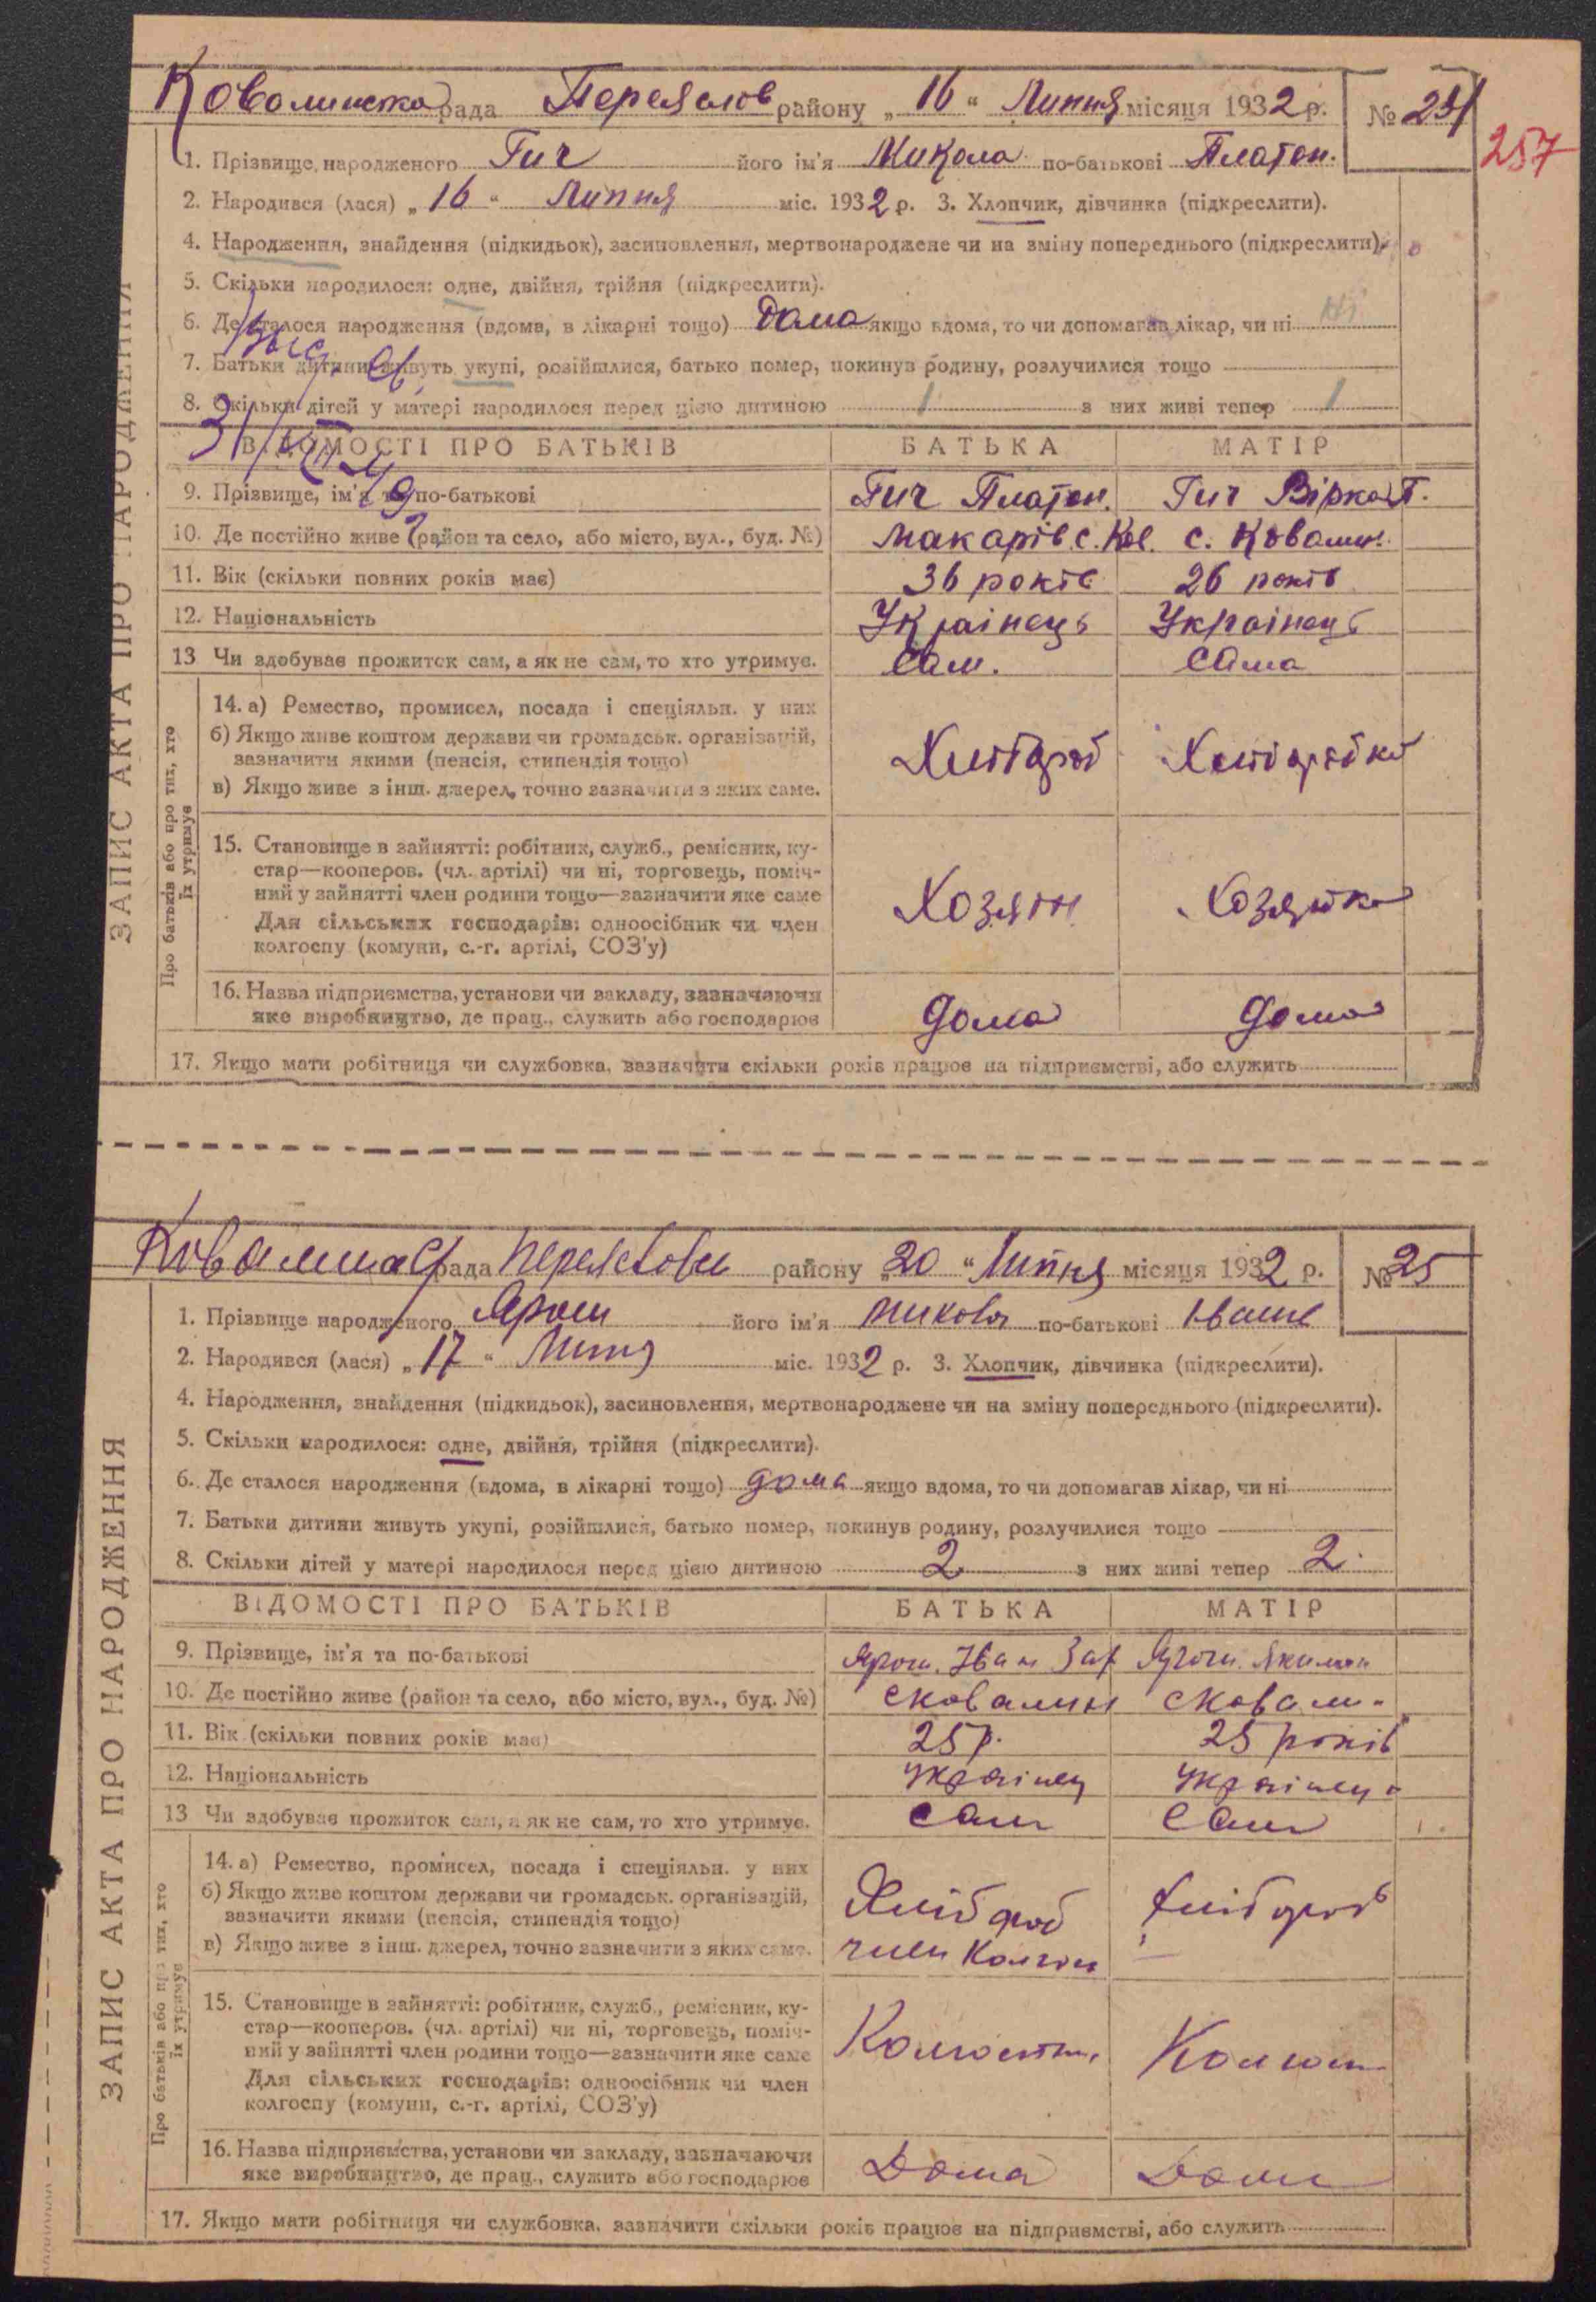 Коволинска рада Переяслов району „16“ Липня місяця 1932 р. № 24
257
1. Прізвище народженого Гич його ім'я Микола по-батькові Платон.
2. Народився (лася) „16“ Липня міс. 1932 р. 3. Хлопчик, дівчинка (підкреслити).
4. Народження, знайдення (підкидьок), засиновлення, мертвонароджене чи на зміну попереднього (підкреслити).
5. Скільки народилося: одне, двійня, трійня (підкреслити).
6. Де сталося народження (вдома, в лікарні тощо) Дома якщо вдома, то чи допомагав лікар, чи ні Ні
7. Батьки дитини живуть укупі, розійшлися, батько помер, покинув родину, розлучилися тощо
8. Скільки дітей у матері народилося перед цією дитиною 1 з них живі тепер 1
ВІДОМОСТІ ПРО БАТЬКІВ БАТЬКА МАТІР
9. Прізвище, ім'я та по-батькові Гич Платон. Гич Вірка Т.
10. Де постійно живе (район та село, або місто, вул., буд. №) Макарів с. Ков. с. Ковалин.
11. Вік (скільки повних років має) 36 років 26 років
12. Національність Українець Українець
13 Чи здобуває прожиток сам, а як не сам, то хто утримує. Сам. Сама
14. а) Ремество, промисел, посада і спеціяльн. у них
б) Якщо живе коштом держави чи громадськ. організацій,
зазначити якими (пенсія, стипендія тощо)
в) Якщо живе з інш. джерел, точно зазначити з яких саме.
Хлібороб Хлiборобка
15. Становище в зайнятті: робітник, служб., ремісник, ку-
стар—кооперов. (чл. артілі) чи ні, торговець, поміч-
ний у зайнятті член родини тощо—зазначити яке саме
Для сільських господарів: одноосібник чи член
колгоспу (комуни, с.-г. артілі, СОЗ'у)
Хозяін Хозяйка
16. Назва підприємства, установи чи закладу, зазначаючи
яке виробництво, де прац., служить або господарює
Дома Дома
17. Якщо мати робітниця чи службовка, зазначити скільки років працює на підприємстві, або служить
ЗАПИС АКТА ПРО НАРОДЖЕННЯ
Про батьків або про тих, хто
їх утримує
рада району „20“ Липня місяця 1932 р. № 25
1. Прізвище народженого Ярош його ім'я Микола по-батькові Іванів
2. Народився (лася) „17“ Липня міс. 1932 р. 3. Хлопчик, дівчинка (підкреслити).
4. Народження, знайдення (підкидьок), засиновлення, мертвонароджене чи на зміну попереднього (підкреслити).
5. Скільки народилося: одне, двійня, трійня (підкреслити).
6. Де сталося народження (вдома, в лікарні тощо) дома якщо вдома, то чи допомагав лікар, чи ні
7. Батьки дитини живуть укупі, розійшлися, батько помер, покинув родину, розлучилися тощо
8. Скільки дітей у матері народилося перед цією дитиною 2 з них живі тепер 2
ВІДОМОСТІ ПРО БАТЬКІВ БАТЬКА МАТІР
9. Прізвище, ім'я та по-батькові Ярош. Іван Зах Ярош.
10. Де постійно живе (район та село, або місто, вул., буд. №) с Ковалин с Ковали
11. Вік (скільки повних років має) 25 р. 25 років
12. Національність Українец Українец
13 Чи здобуває прожиток сам, а як не сам, то хто утримує. Сам Сам
14. а) Ремество, промисел, посада і спеціяльн. у них
б) Якщо живе коштом держави чи громадськ. організацій,
зазначити якими (пенсія, стипендія тощо)
в) Якщо живе з інш. джерел, точно зазначити з яких саме.
Хлібороб хлібороб
член Колгос
15. Становище в зайнятті: робітник, служб., ремісник, ку-
стар—кооперов. (чл. артілі) чи ні, торговець, поміч-
ний у зайнятті член родини тощо—зазначити яке саме
Для сільських господарів: одноосібник чи член
колгоспу (комуни, с.-г. артілі, СОЗ'у)
16. Назва підприємства, установи чи закладу, зазначаючи
яке виробництво, де прац., служить або господарює
Дома Дома
17. Якщо мати робітниця чи службовка, зазначити скільки років працює на підприємстві, або служить
ЗАПИС АКТА ПРО НАРОДЖЕННЯ
Про батьків або про тих, хто
їх утримує